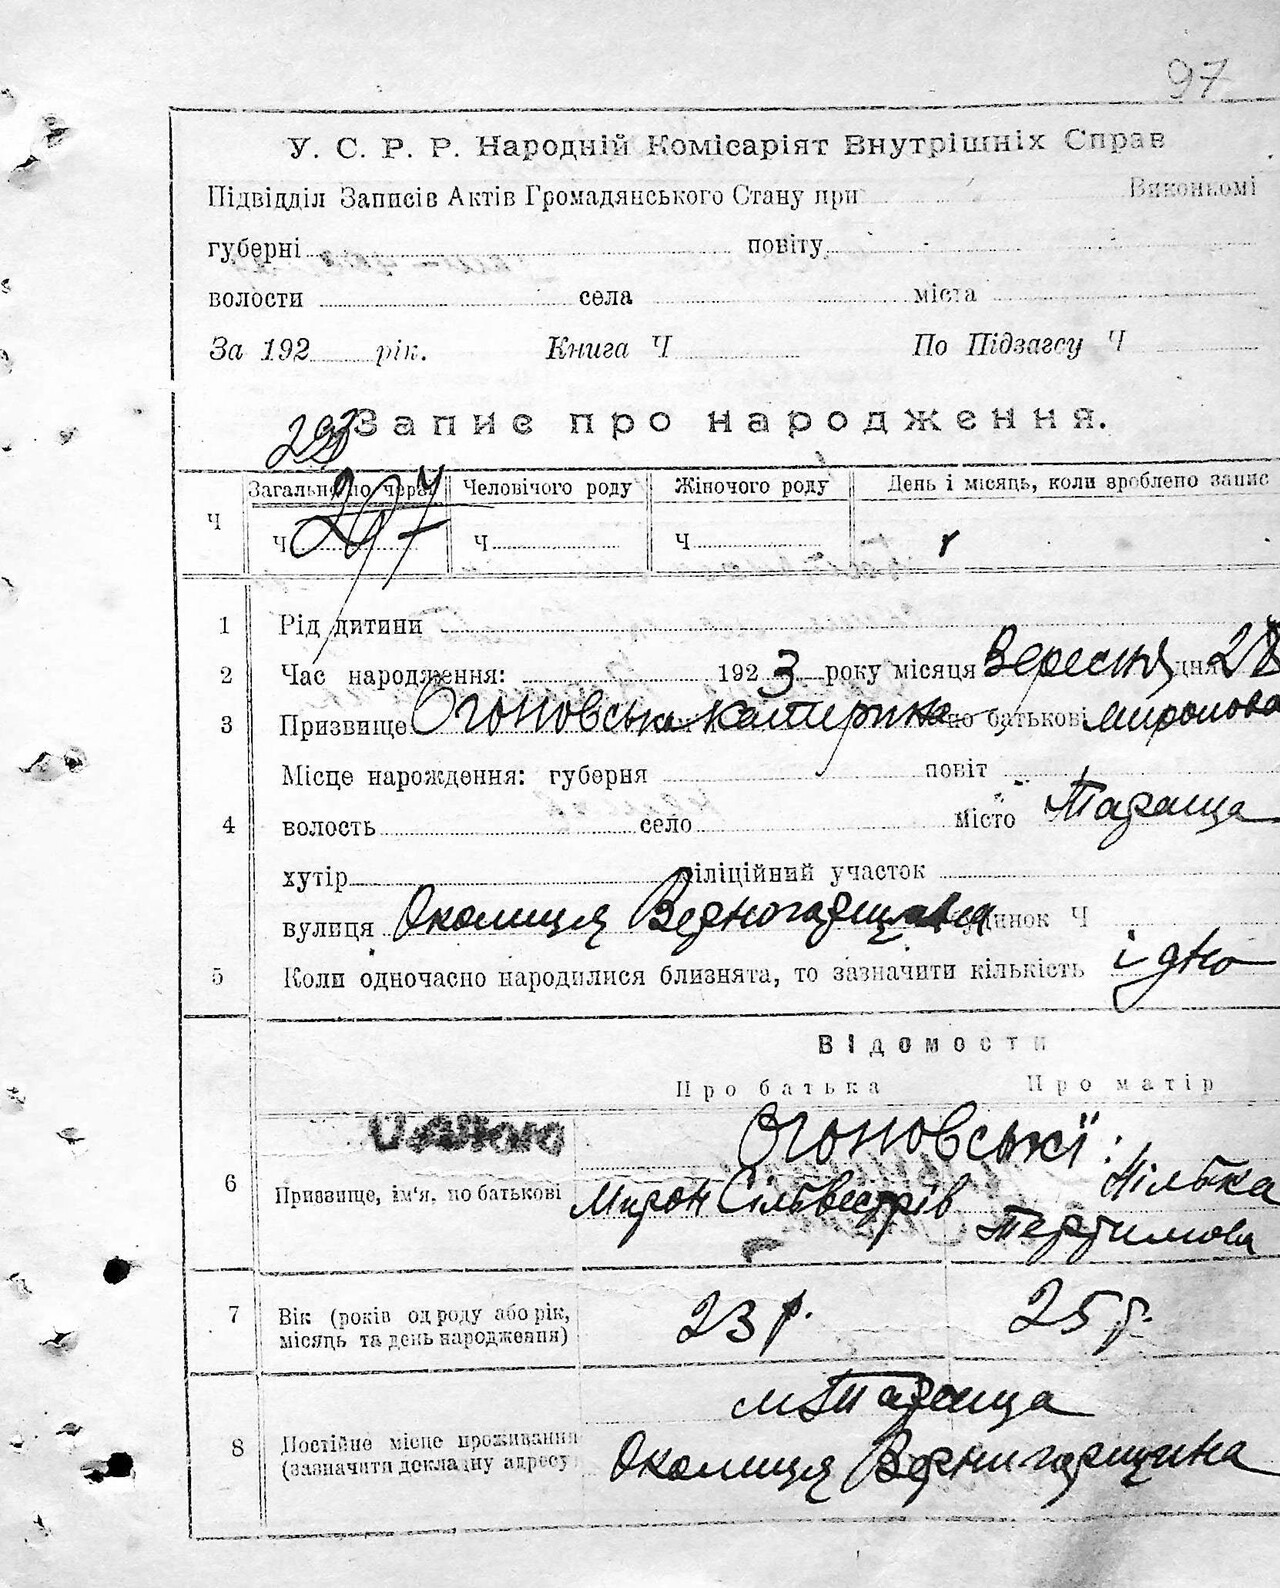 97
У. С. Р. Р. Народній Комісаріят Внутрішніх Справ
Підвідділ Записів Актів Громадянського Стану при Виконкомі
губерні повіту
волости села міста
За 192 рік. Книга Ч По Підзагсу Ч
Запис про народження.
293
Загально по черзі Человічого роду Жіночого роду День і місяць, коли зроблено запис
Ч Ч 297 Ч Ч
1 Рід дитини
2 Час народження: 1923 року місяця Вересня дня 28
3 Призвище Огоновська Катирина по батькові Миронова
Місце народження: губерня повіт
4 волость село місто Тараща
хутір міліційний участок
вулиця Околиця Верногарщина будинок Ч
5 Коли одночасно народилися близнята, то зазначити кількість і дно
Відомости
Про батька Про матір
Огоновські:
6 Призвище, ім'я, по батькові Мирон Сільвестрів Мілька
7 Вік (років од роду або рік, 23 р. 25 р.
місяць та день народження)
м. Тараща
8 Постійне місце проживання
(зазначити докладну адресу) Околиця Вернигарщина